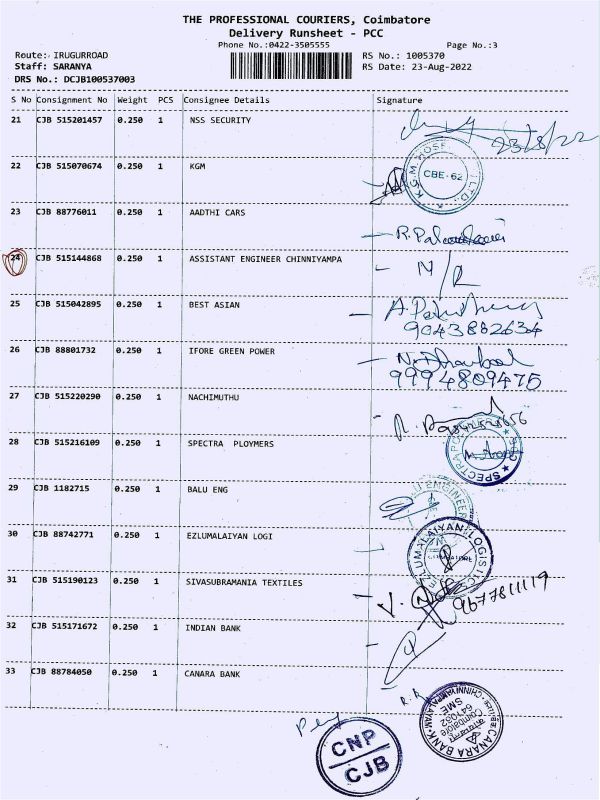 THE PROFESSIONAL COURIERS, Coimbatore
Delivery Runsheet - PCC
Phone No.:0422-3505555 Page No.:3
Route: IRUGURROAD RS No.: 1005370
Staff: SARANYA RS Date: 23-Aug-2022
DRS No.: DCJB100537003
S No Consignment No Weight PCS Consignee Details Signature
21 CJB 515201457 0.250 1 NSS SECURITY
23/8/22
22 CJB 515070674 0.250 1 KGM
K.G.M. HOSP LTD.
CBE-62
23 CJB 88776011 0.250 1 AADTHI CARS
24 CJB 515144868 0.250 1 ASSISTANT ENGINEER CHINNIYAMPA N/R
25 CJB 515042895 0.250 1 BEST ASIAN
9043882634
26 CJB 88801732 0.250 1 IFORE GREEN POWER
9994809475
27 CJB 515220290 0.250 1 NACHIMUTHU
28 CJB 515216109 0.250 1 SPECTRA PLOYMERS
29 CJB 1182715 0.250 1 BALU ENG
30 CJB 88742771 0.250 1 EZLUMALAIYAN LOGI
EZLUMALAIYAN LOGISTICS
31 CJB 515190123 0.250 1 SIVASUBRAMANIA TEXTILES
9677811119
32 CJB 515171672 0.250 1 INDIAN BANK
33 CJB 88784050 0.250 1 CANARA BANK
CANARA BANK
CHINNIYAMPALAYAM
Coimbatore
641062
SME
CNP
CJB